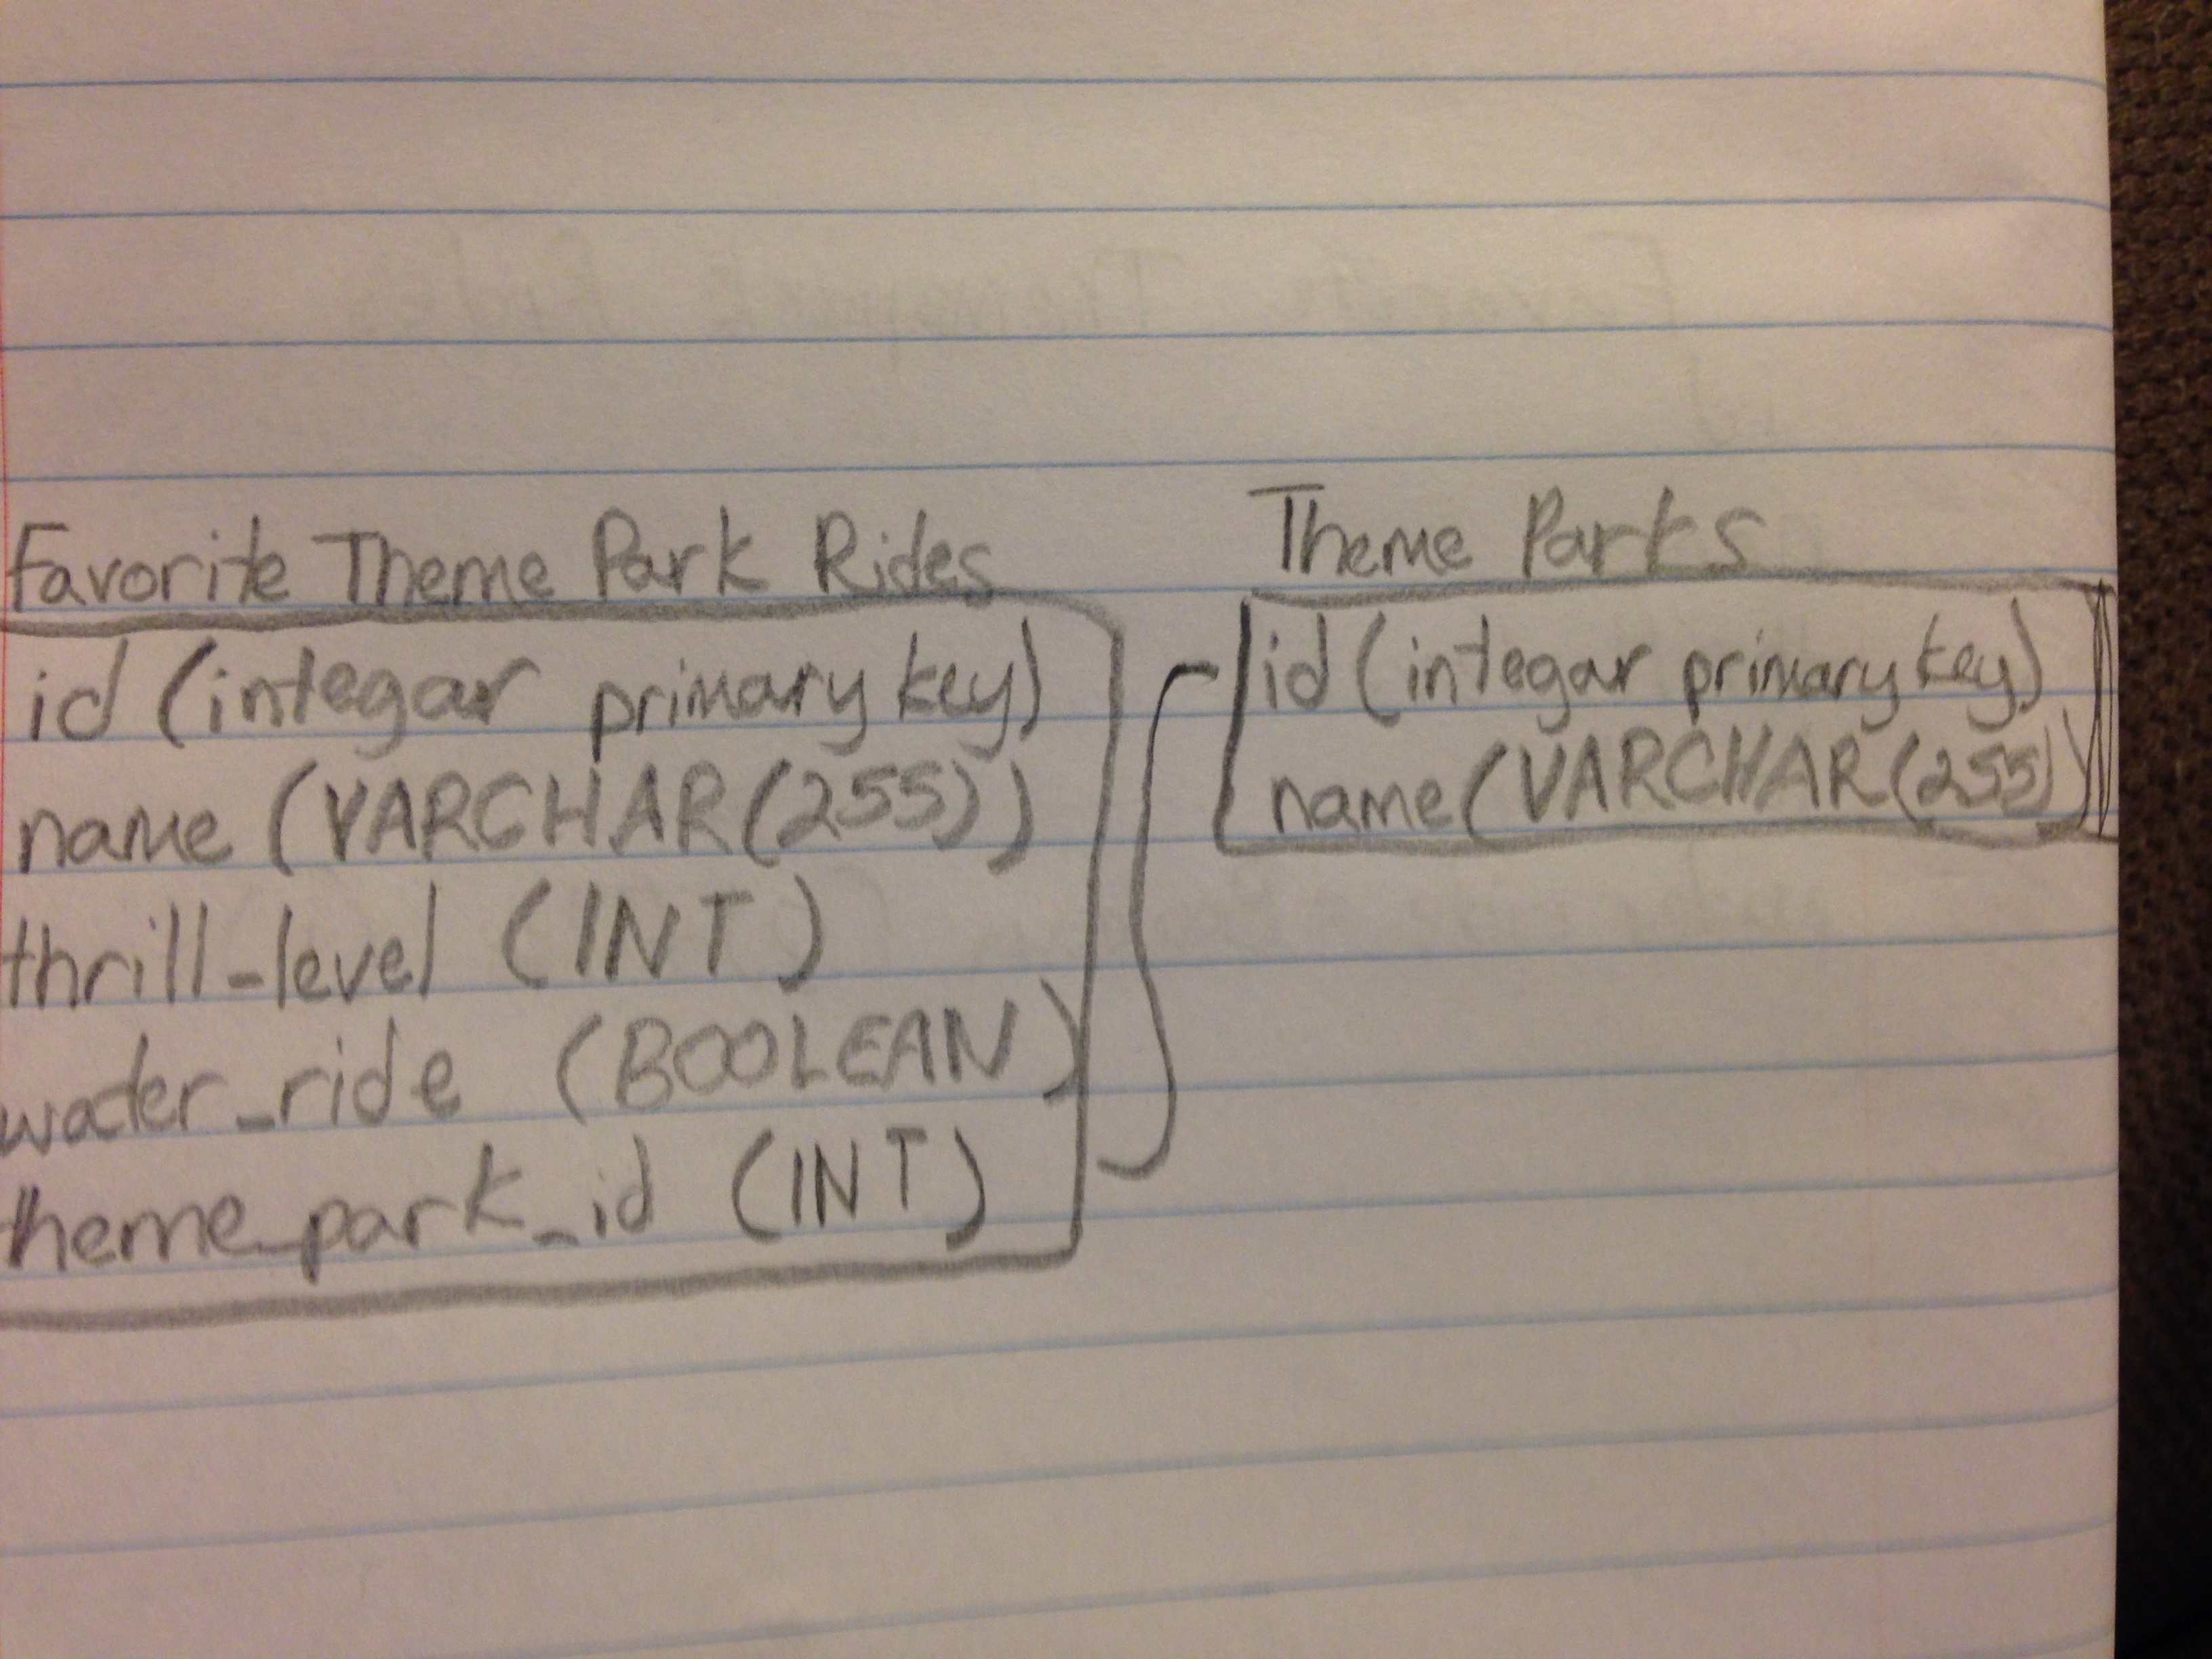 Favorite Theme Park Rides
id (integar primary key)
name (VARCHAR(255))
thrill_level (INT)
water_ride (BOOLEAN)
theme_park_id (INT)
Theme Parks
id (integar primary key)
name (VARCHAR(255))